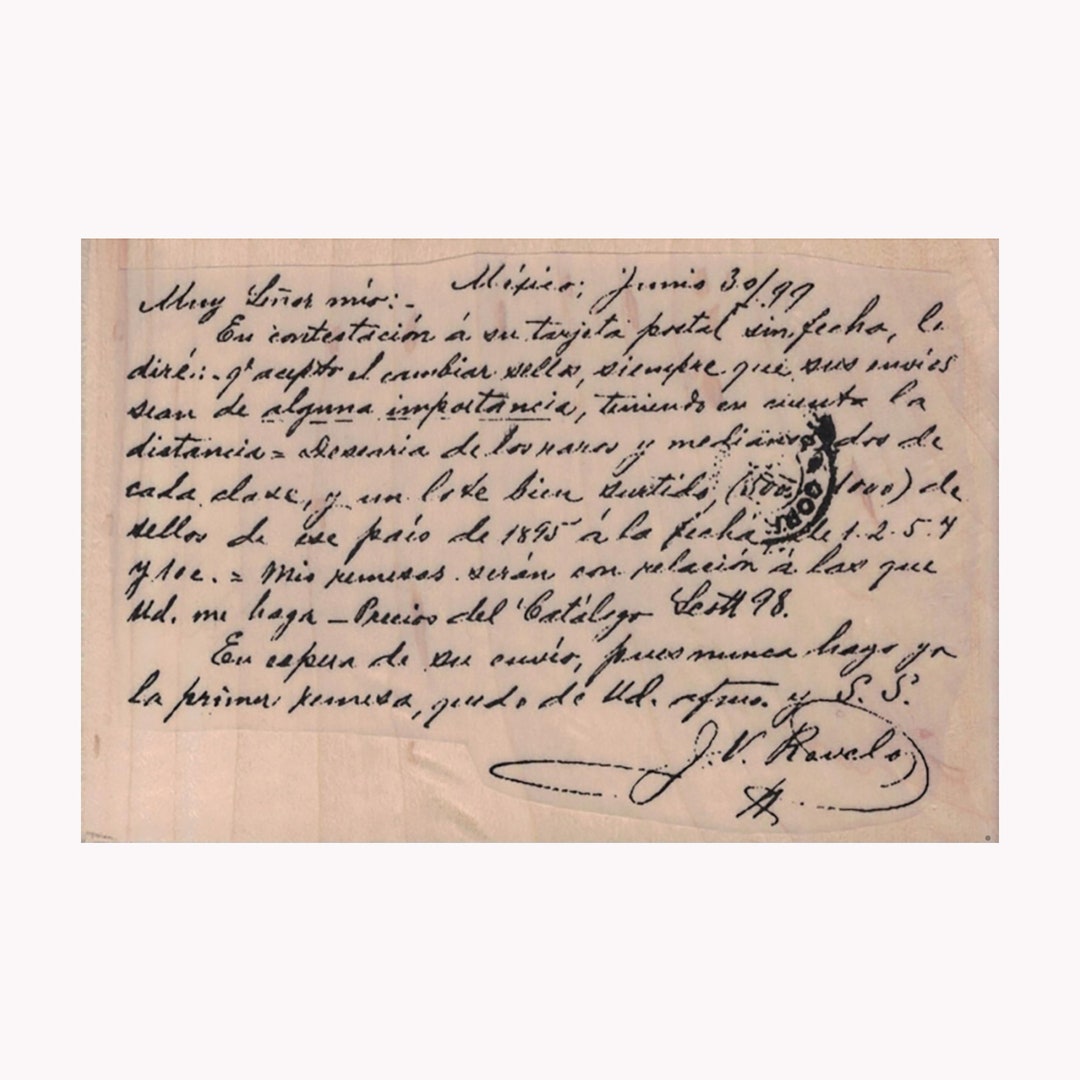 México; Junio 30/99
Muy Señor mío:-
En contestación á su tarjeta postal sin fecha, le
diré:- qe acepto el cambiar sellos, siempre que sus envíos
sean de alguna importancia, teniendo en cuenta la
distancia = Desearia de los raros y medianos dos de
cada clase, y un lote bien surtido, (500 1000) de
sellos de ese país de 1895 á la fecha de 1. 2. 5.
y 10 c. = Mis remesas serán con relación á las que
Ud. me haga – Precios del Catálogo Scott 98.
En espera de su envío, pues nunca hago yo
la primer remesa, quedo de Ud. afmo. y S. S.
J. V. Rovelo